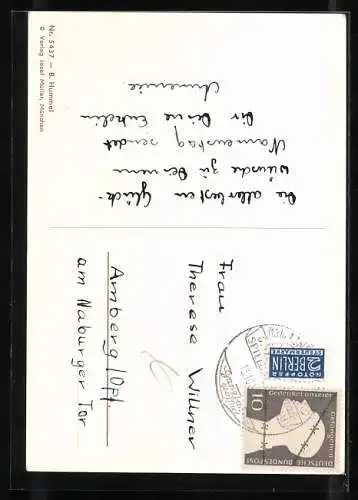 Die allerbesten Glück-
wünsche zu Deinem
Namenstag sendet
Dir Deine Enkelin
Annemie.
Nr. 5437 — B. Hummel
© Verlag Josef Müller, München
Frau
Therese Willner
Amberg/Opf.
am Naburger Tor
NOTOPFER
2 BERLIN
STEUERMARKE
Gedenket unserer
Gefangenen
10
DEUTSCHE BUNDESPOST